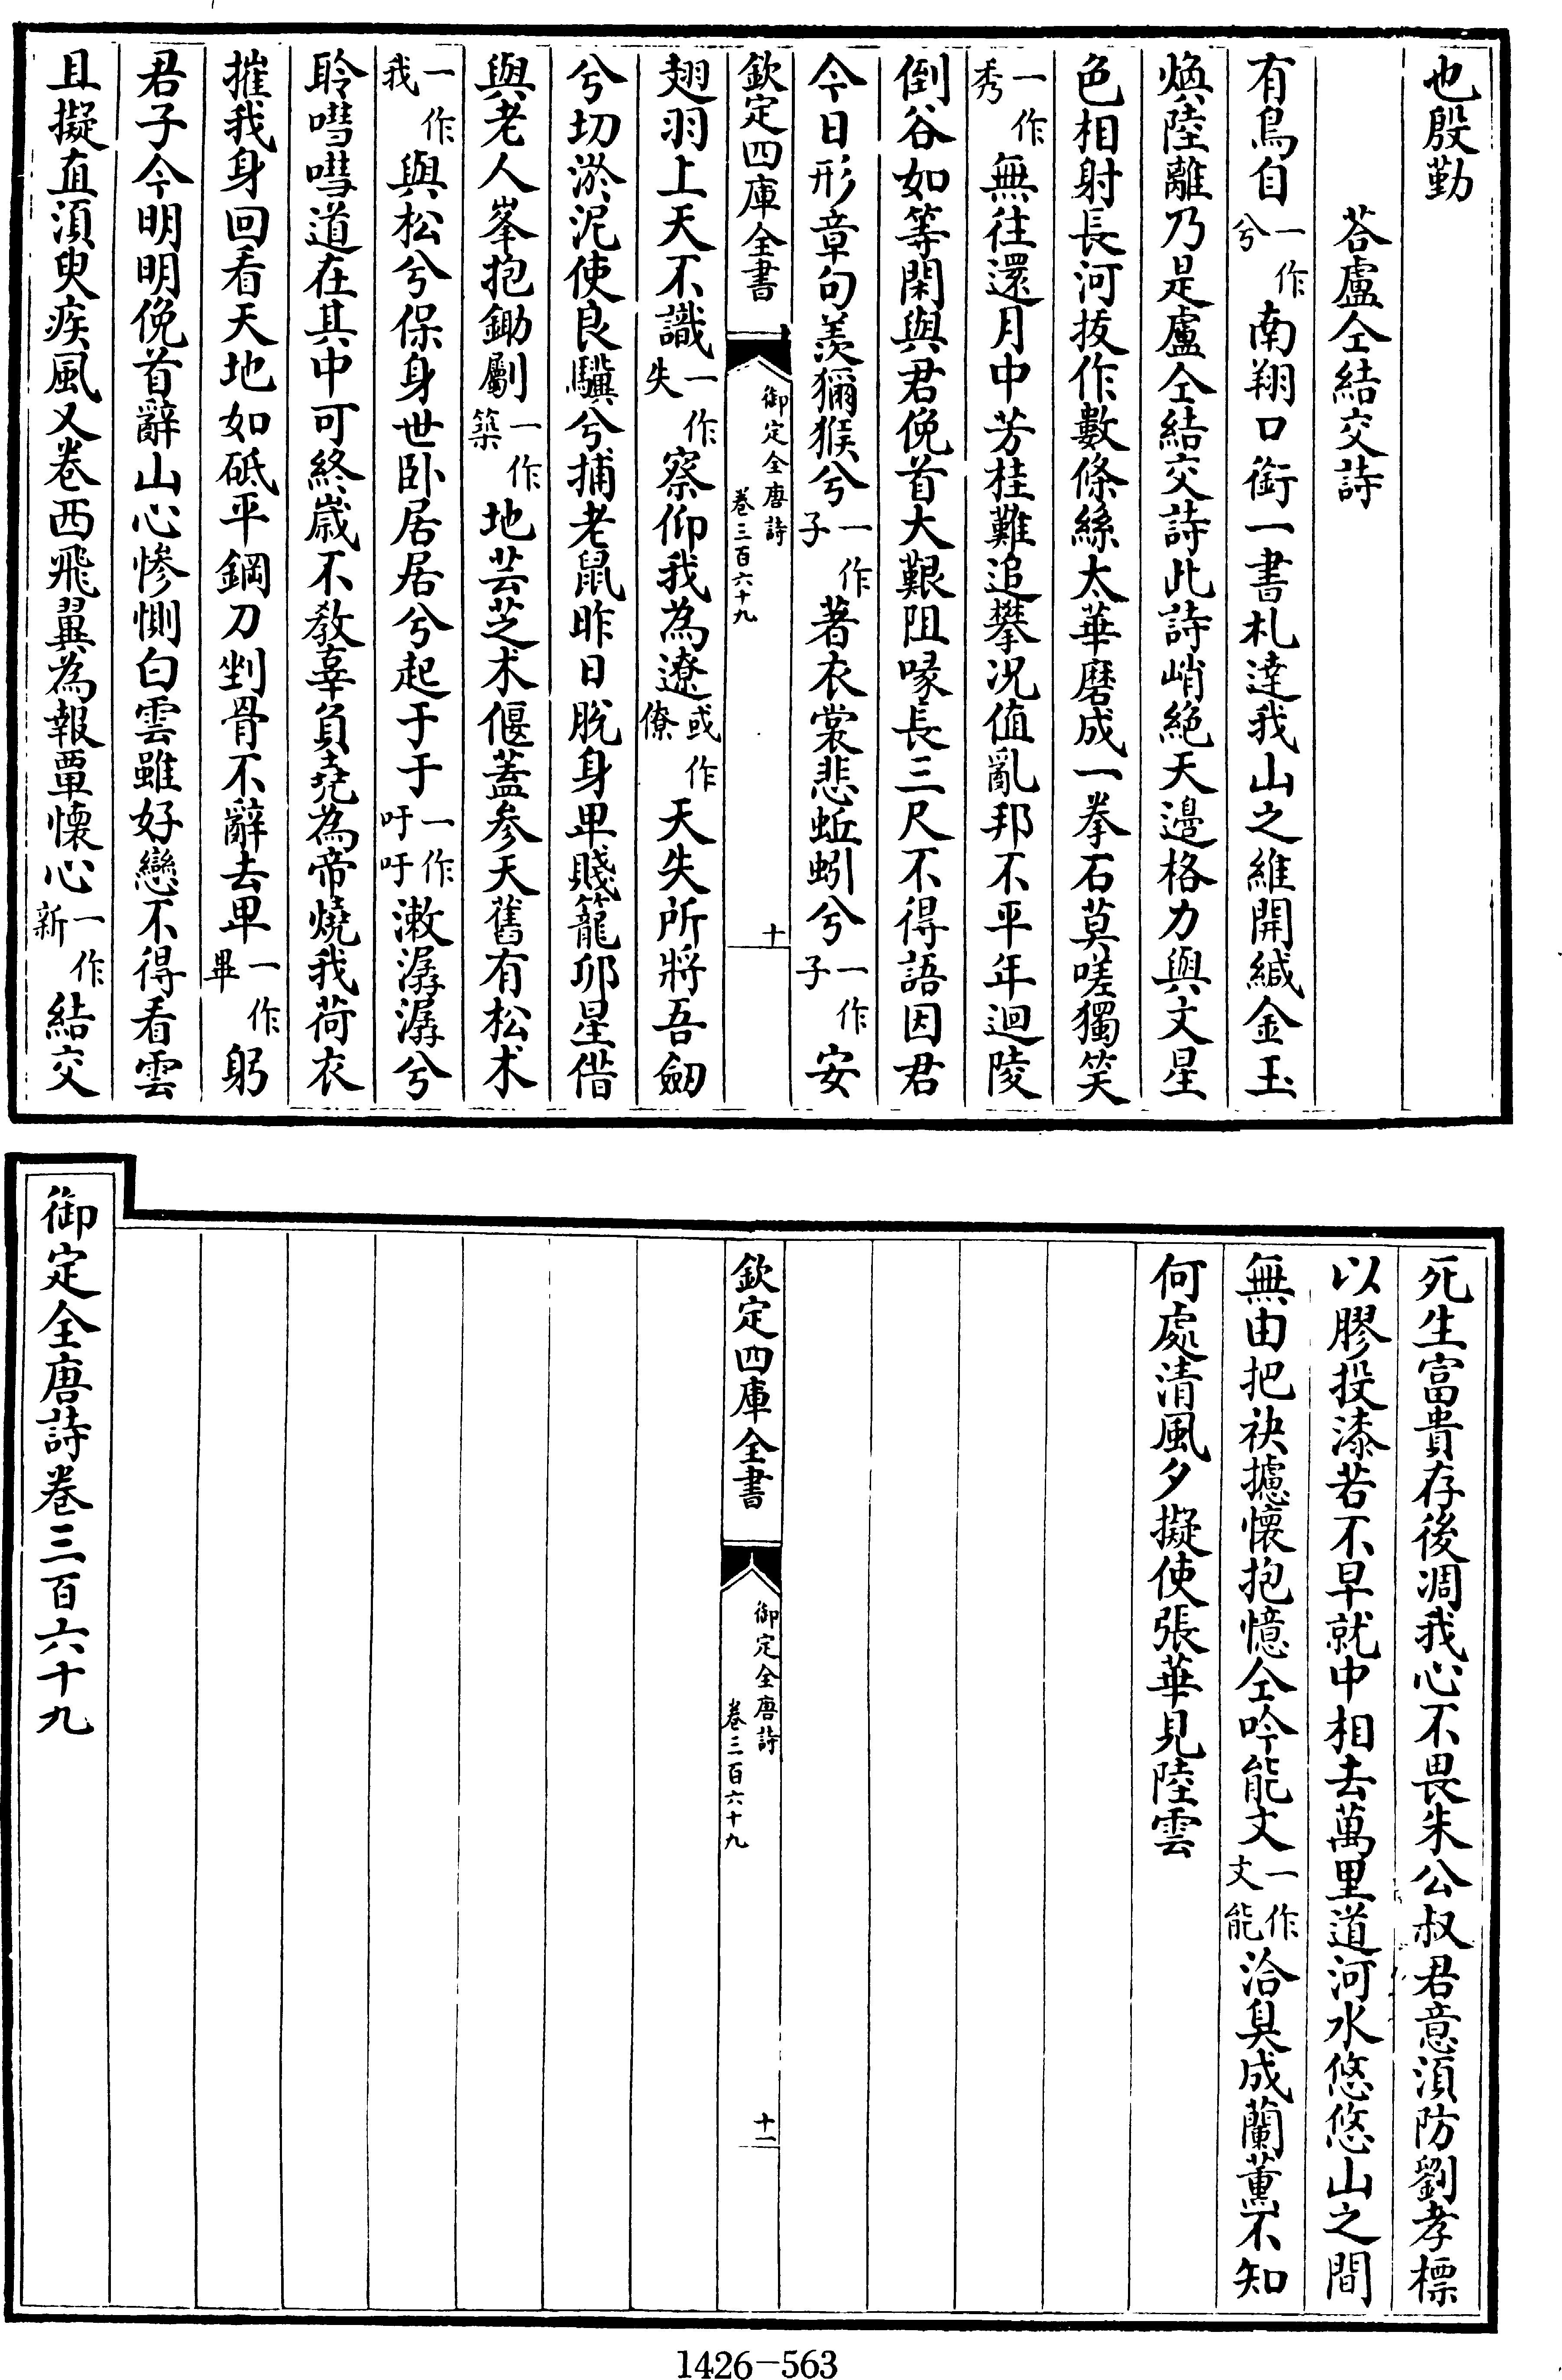 也殷勤
荅盧仝結交詩
有鳥自一作兮南翔口銜一書札達我山之維開緘金玉
煥陸離乃是盧仝結交詩此詩峭絕天邊格力與文星
色相射長河拔作數條絲太華磨成一拳石莫嗟獨笑
一作秀無往還月中芳桂難追攀况值亂邦不平年迴陵
倒谷如等閑與君俛首大艱阻喙長三尺不得語因君
今日形章句羨獼猴兮一作子著衣裳悲蚯蚓兮一作子安
欽定四庫全書
御定全唐詩
卷三百六十九
十
翅羽上天不識一作失察仰我為遼或作僚天失所將吾劒
兮切淤泥使良驥兮捕老鼠昨日脫身卑賤籠卯星借
與老人峯抱鋤劚一作築地芸芝术偃蓋參天舊有松术
一作我與松兮保身世卧居居兮起于于一作吁吁漱潺潺兮
聆嘒嘒道在其中可終嵗不教辜負堯為帝燒我荷衣
摧我身回看天地如砥平鋼刀剉骨不辭去卑一作畢躬
君子今明明俛首辭山心慘惻白雲雖好戀不得看雲
且擬直須臾疾風又卷西飛翼為報覃懷心一作新結交
死生富貴存後凋我心不畏朱公叔君意須防劉孝標
以膠投漆若不早就中相去萬里道河水悠悠山之間
無由把袂攄懷抱憶仝吟能文一作文能洽臭成蘭薫不知
何處清風夕擬使張華見陸雲
欽定四庫全書
御定全唐詩
卷三百六十九
十一
御定全唐詩卷三百六十九
1426-563